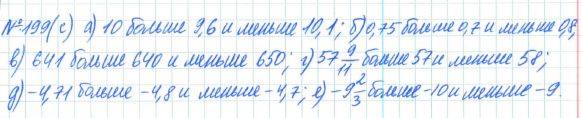 №199(с) а) 10 больше 9,6 и меньше 10,1; б) 0,75 больше 0,7 и меньше 0,8;
в) 641 больше 640 и меньше 650; г) 57 9/11 больше 57 и меньше 58;
д) -4,71 больше -4,8 и меньше -4,7; е) -9 2/3 больше -10 и меньше -9.